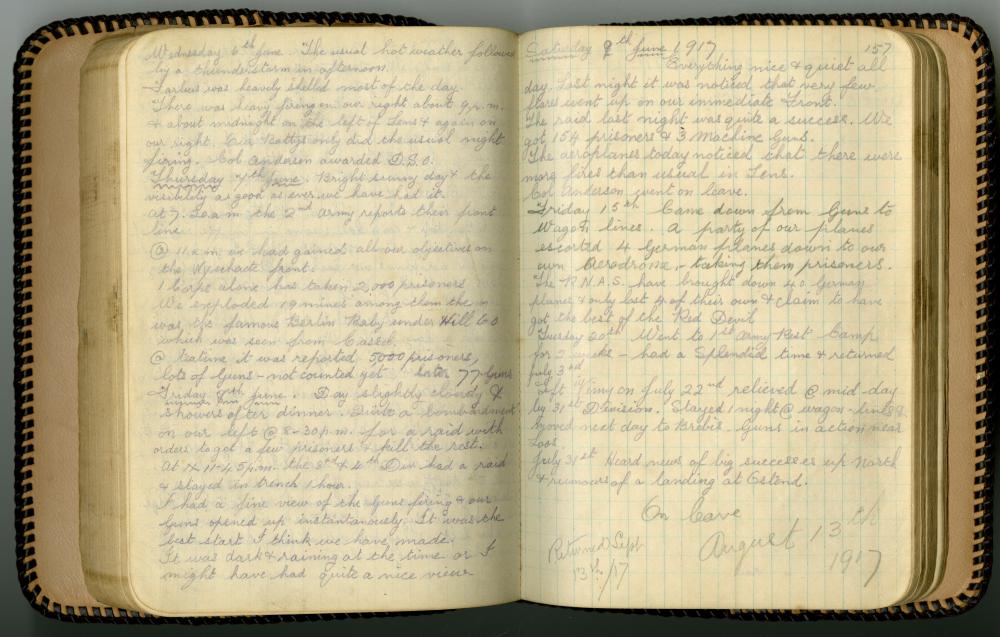 Wednesday 6th June. The usual hot weather followed
by a thunderstorm in afternoon.
Farbus was heavily shelled most of the day.
There was heavy firing on our right about 9 p.m.
& about midnight on the left of Lens & again on
our right. Our Battys only did the usual night
firing. Col Anderson awarded D.S.O.
Thursday 7th June. Bright sunny day & the
visibility as good as ever we have had it.
at 7.20 a.m the 2nd army reports their front
line
@ 11 a.m. we had gained all our objectives on
the Wyschaete front.
1 Corps alone has taken 2,000 prisoners
We exploded 19 mines among them the
was the famous Berlin Baby under Hill 60
which was seen from Cassel.
@ teatime it was reported 5000 prisoners,
lots of Guns - not counted yet. Later 77 Guns
Friday 8th June. Day slightly cloudy &
showers after dinner. Quite a bombardment
on our left @ 8-30 p.m. for a raid with
orders to get a few prisoners & kill the rest.
At 11-45 p.m. the 3rd & 4th Div had a raid
& stayed in trench 1 hour.
I had a fine view of the Guns firing & our
Guns opened up instantaneously. It was the
best start I think we have made.
It was dark & raining at the time or I
might have had quite a nice view
Saturday 9th June 1917 157
Everything nice & quiet all
day. Last night it was noticed that very few
flares went up on our immediate Front.
The raid last night was quite a success. We
got 154 prisoners & 3 Machine Guns.
The aeroplanes today noticed that there were
more fires than usual in Lens.
Col Anderson went on leave.
Friday 15th Came down from Guns to
Wagon lines. A party of our planes
escorted 4 German planes down to our
own Aerodrome, - taking them prisoners.
The R.N.A.S. have brought down 40 German
planes & only lost 4 of their own & claim to have
got the best of the Red Devil
Tuesday 20th Went to 1st Army Rest Camp
for 2 weeks - had a Splendid time & returned
July 3rd
Left Vimy on July 22nd relieved @ mid-day
by 31st Division. Stayed 1 night @ wagon-lines &
moved next day to Brebis. Guns in action near
Loos.
July 31st Heard news of big successes up North
& rumours of a landing at Ostend.
On Leave
August 13th
1917
Returned Sept
13th/17